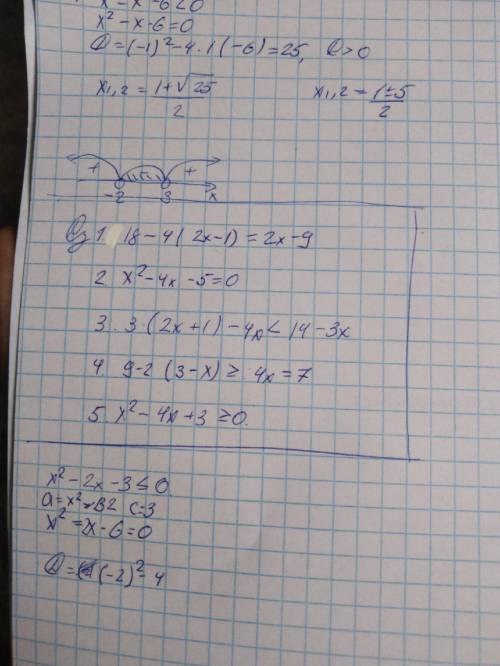 x² - x - 6 < 0
x² - x - 6 = 0
D = (-1)² - 4 · 1 (-6) = 25, D > 0
x₁,₂ = 1+√25 / 2 x₁,₂ = 1±5 / 2
+ +
-2 3 x
1 18 - 4 ( 2x - 1) = 2x - 9
2 x² - 4x - 5 = 0
3. 3 · (2x + 1) - 4x < 14 - 3x
4. 9 - 2 (3 - x) ≥ 4x = 7
5. x² - 4x + 3 ≥ 0.
x² - 2x - 3 ≤ 0
a = x² - B2 c = 3
x² = x - 6 = 0
D = (-2)² - 4